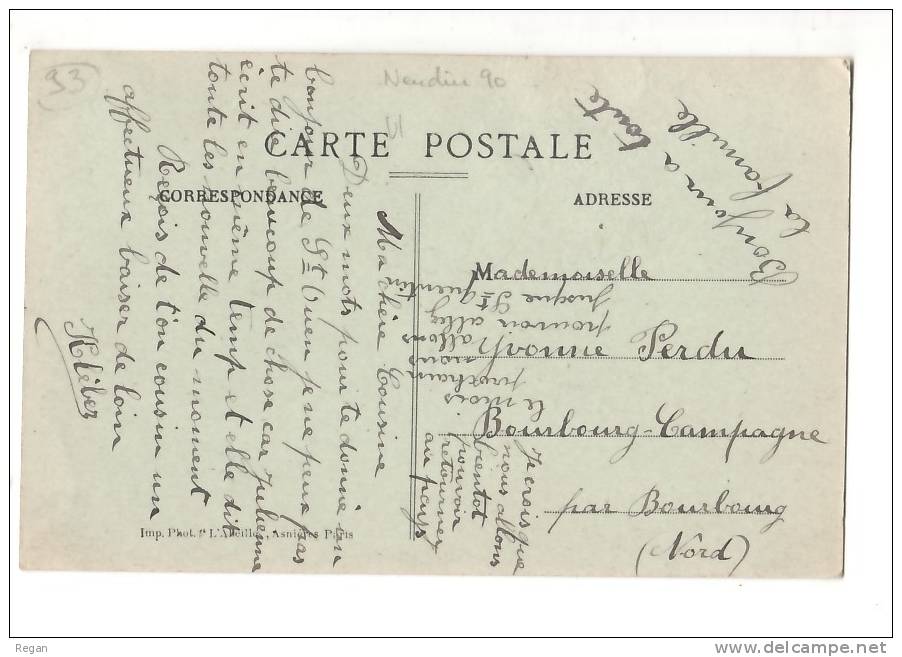 93
Neudin 90
CARTE POSTALE
CORRESPONDANCE
ADRESSE
Ma chère Cousine
Deux mots pour te donné un
bonjour de St Ouen je ne peux pas
te dire beaucoup de chose car Julienne
écrit en même temp et elle dit
toute les nouvelle du moment
Reçois de ton cousin un
affectueux baiser de loin
Kléber
Je crois que
nous allons
bientot
pouvoir
retourner
au pays
le mois
prochain
nous
allons
pouvoir allez
jusque St
Quentin
Bonjour a toute
la famille
Mademoiselle
Yvonne Perdu
Bourbourg-Campagne
par Bourbourg
(Nord)
Imp. Phot. "L'Abeille", Asnières Paris
Regan
www.delcampe.net